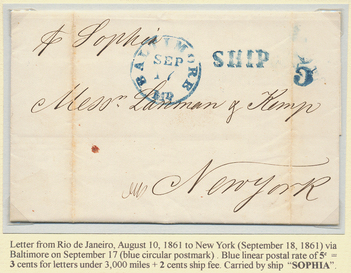 pr Sophia
BALTIMORE
SEP
17
MD
SHIP
5
Messrs Lanman & Kemp
New York
Letter from Rio de Janeiro, August 10, 1861 to New York (September 18, 1861) via
Baltimore on September 17 (blue circular postmark) . Blue linear postal rate of 5¢ =
3 cents for letters under 3,000 miles + 2 cents ship fee. Carried by ship "SOPHIA".